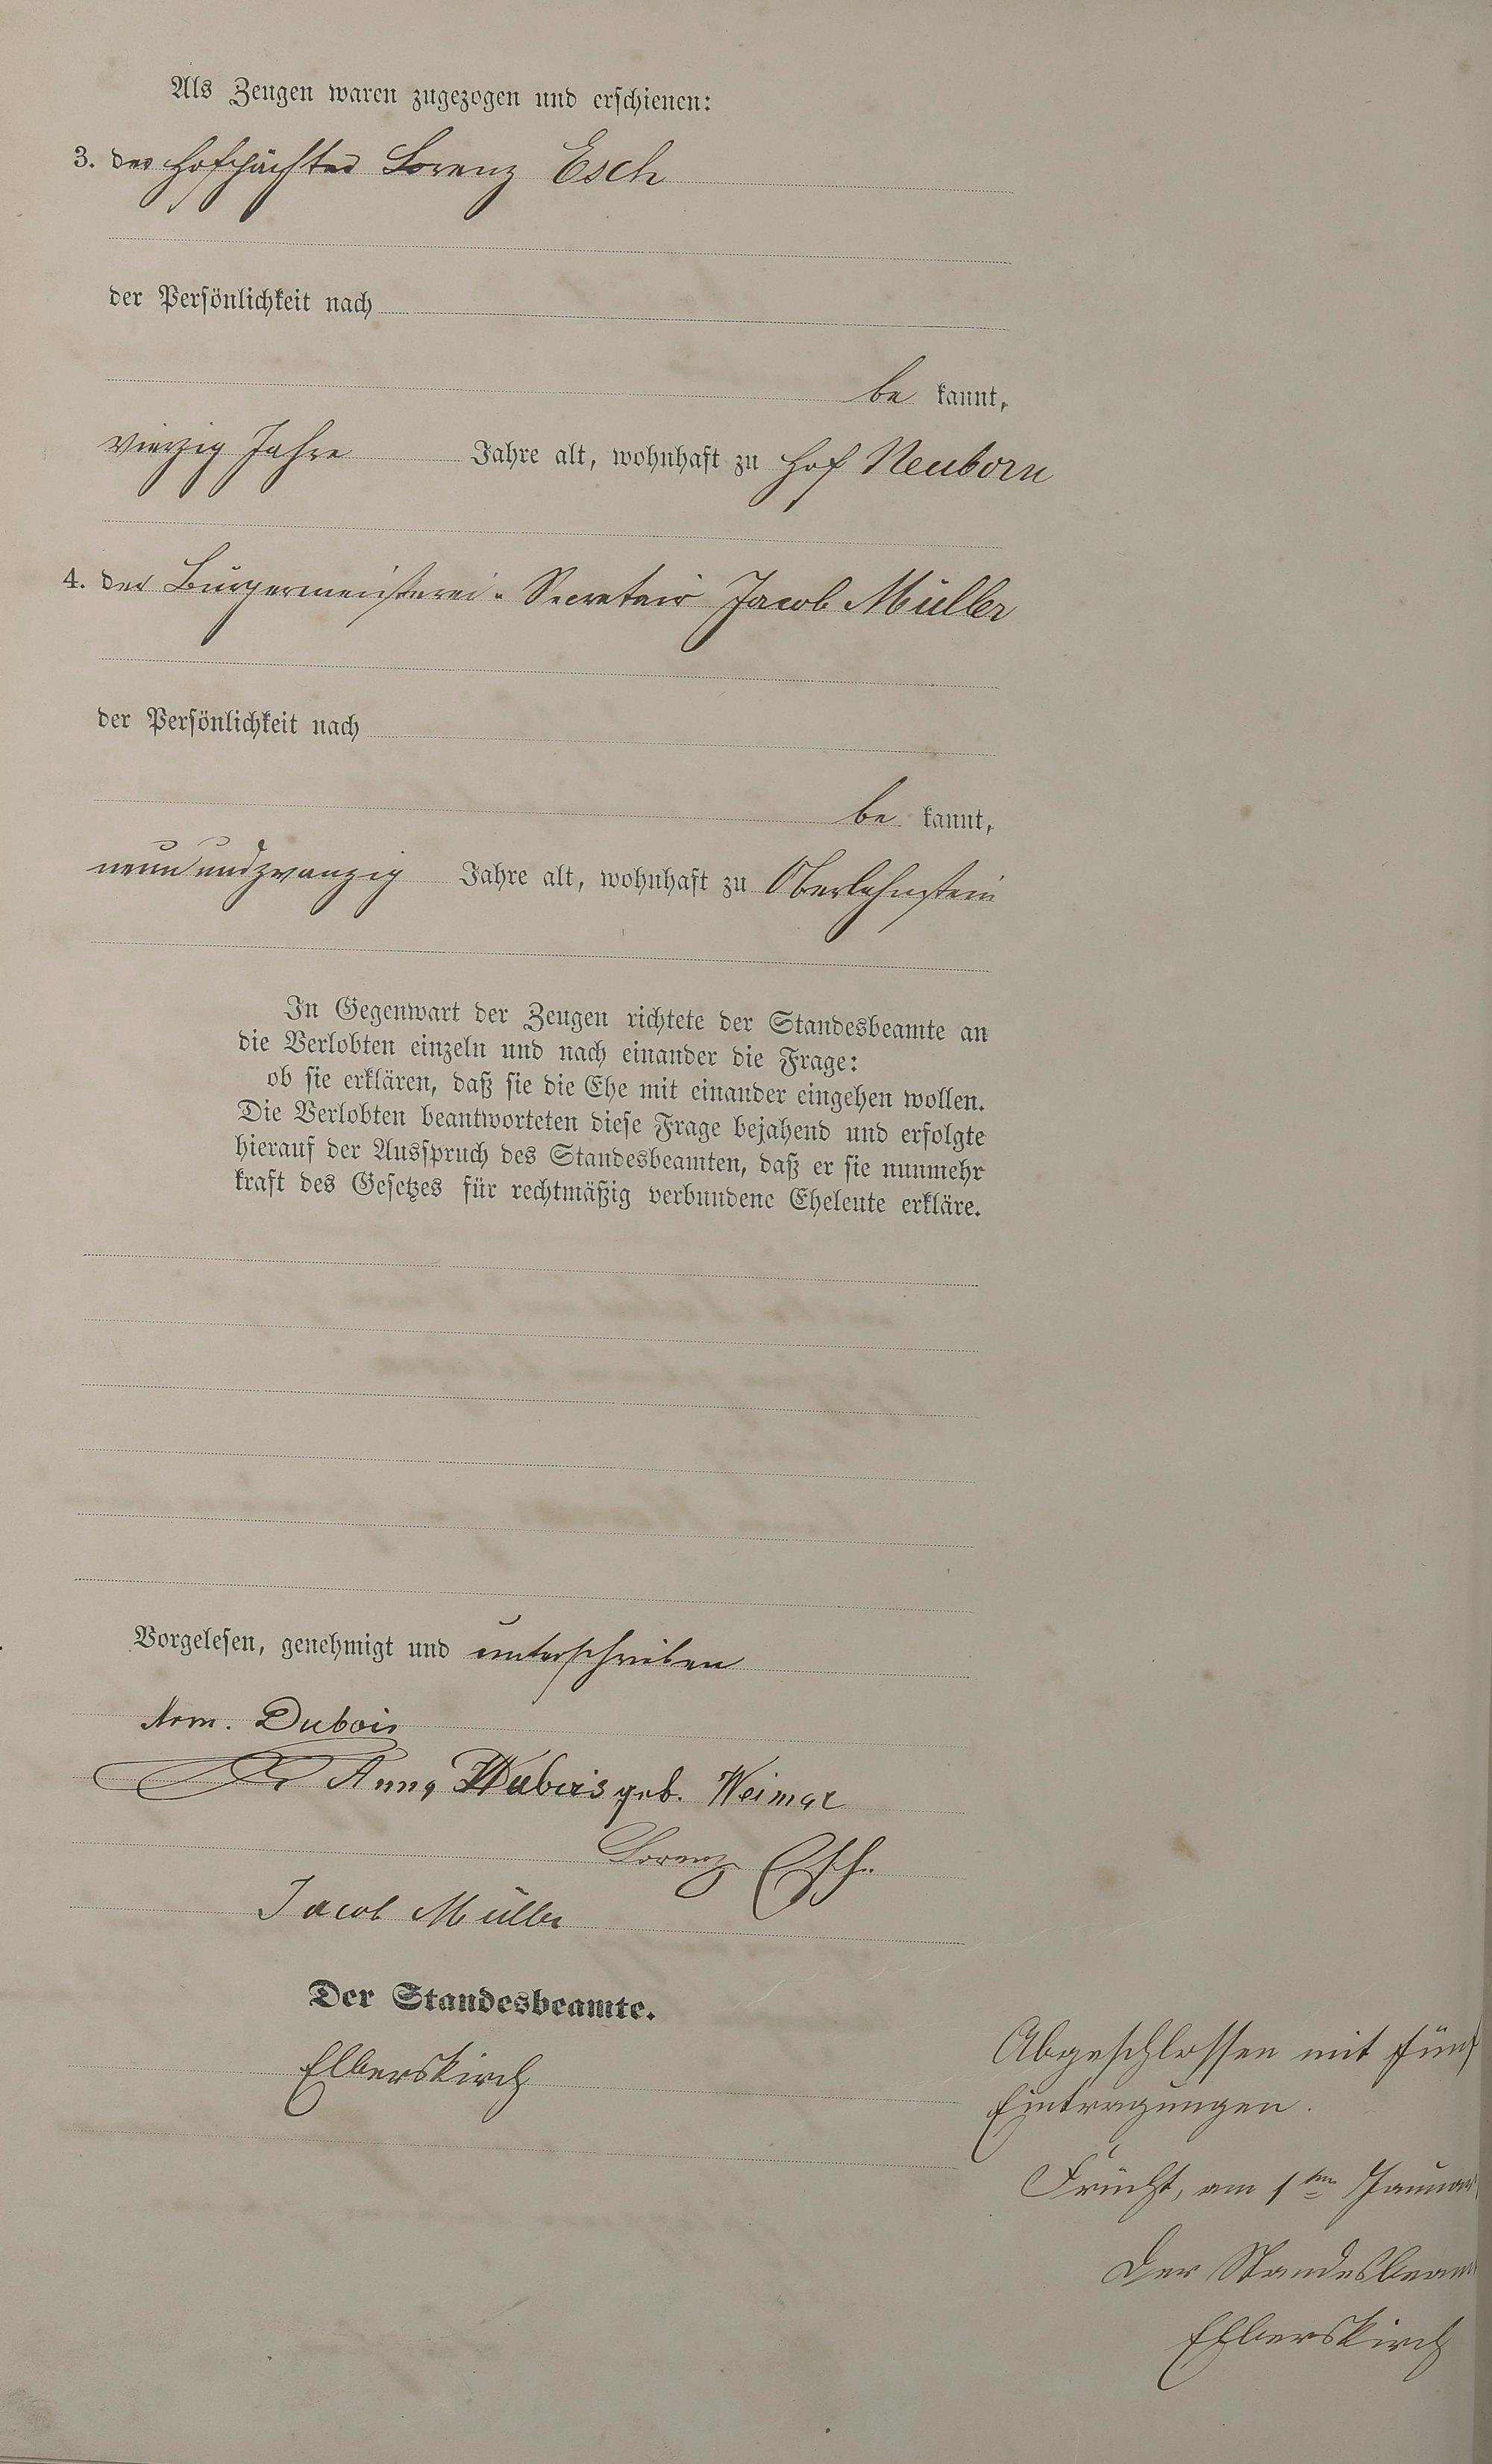 Als Zeugen waren zugezogen und erschienen:
3. der Hofpächter Lorenz Esch
der Persönlichkeit nach
be kannt,
vierzig Jahre Jahre alt, wohnhaft zu Hof Neuborn
4. der Bürgermeisterei-Secretair Jacob Müller
der Persönlichkeit nach
be kannt,
neun und zwanzig Jahre alt, wohnhaft zu Oberlahnstein
In Gegenwart der Zeugen richtete der Standesbeamte an
die Verlobten einzeln und nach einander die Frage:
ob sie erklären, daß sie die Ehe mit einander eingehen wollen.
Die Verlobten beantworteten diese Frage bejahend und erfolgte
hierauf der Ausspruch des Standesbeamten, daß er sie nunmehr
kraft des Gesetzes für rechtmäßig verbundene Eheleute erkläre.
Vorgelesen, genehmigt und unterschrieben
Arm. Dubois
Anna Dubois geb. Weimar
Lorenz Esch.
Jacob Müller
Der Standesbeamte.
Elberskirch
Abgeschlossen mit fünf
Eintragungen.
Frücht, am 1ten Januar
Der Standesbeam
Elberskirch